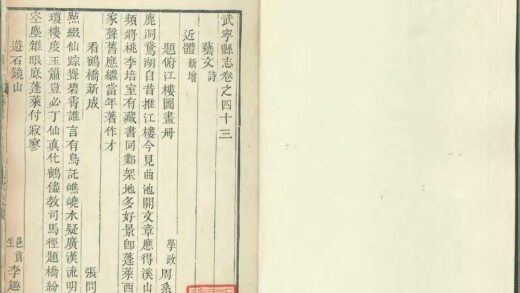 武寧縣志卷之四十三
藝文 詩
近體 新增
題俯江樓圖畫册 學政 周系
鹿洞鵞湖自昔推江樓今見曲池開文章應得溪山
頻將桃李培室有藏書同鄴架地多好景卽蓬萊西
家聲舊應繼當年著作才
看鶴橋新成 張問
㸃綴仙踪聳碧霄誰言有鳥託嶕嶢水疑廣漢流明
瓊樓度玉簫豈必丁仙眞化鶴儘教司馬徑題橋紛
空塵雜眼底蓬萊付寂寥
遊石鏡山 邑貢生 李趣